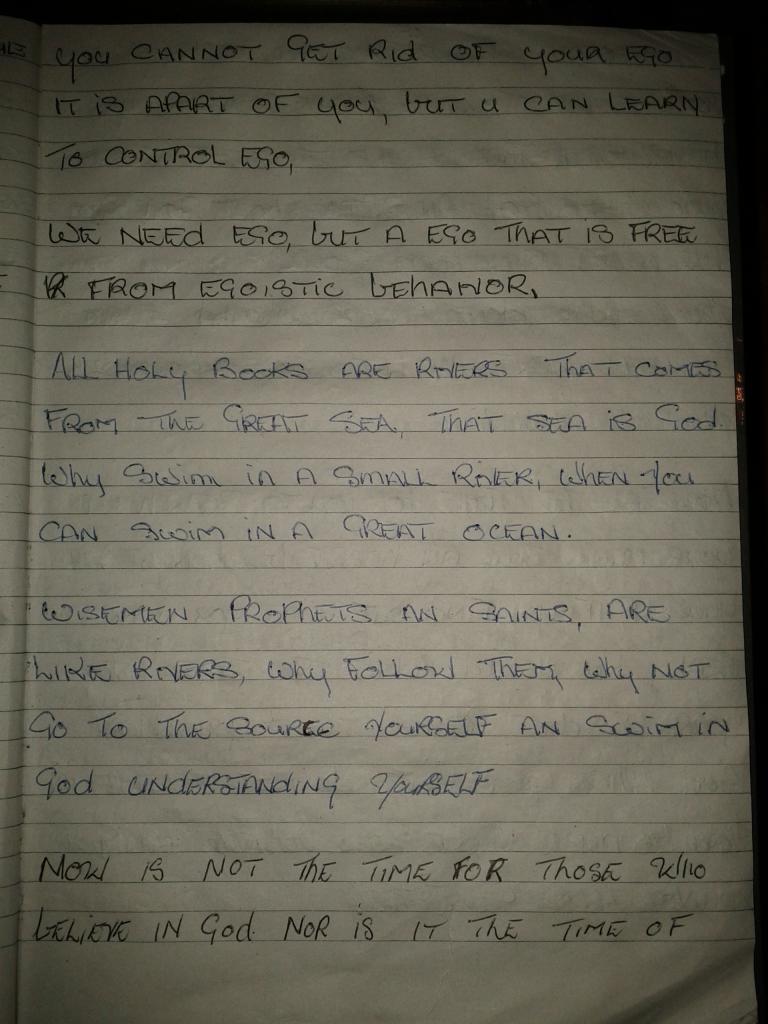 you CANNOT GET Rid OF your EGO
IT is APART OF you, but u CAN LEARN
To CONTROL EGO,
WE NEEd EGO, but A EGO THAT is FREE
FROM EGOiSTiC bEHAVIOR,
ALL HOLY BOOKS ARE RIVERS THAT COMES
FROM THE GREAT SEA, THAT SEA is God.
Why Swim in A SMALL RIVER, WHEN You
CAN Swim IN A GREAT OCEAN.
WISEMEN PROPHETS AN SAINTS, ARE
LIKE RIVERS, Why FOLLOW THEM, Why NOT
GO TO THE SOURCE YOURSELF AN SwiM iN
God UNDERSTANDiNG YOURSELF
NOW IS NOT THE TIME FOR THOSE WHO
bELiEVE IN God. NOR iS IT THE TIME OF